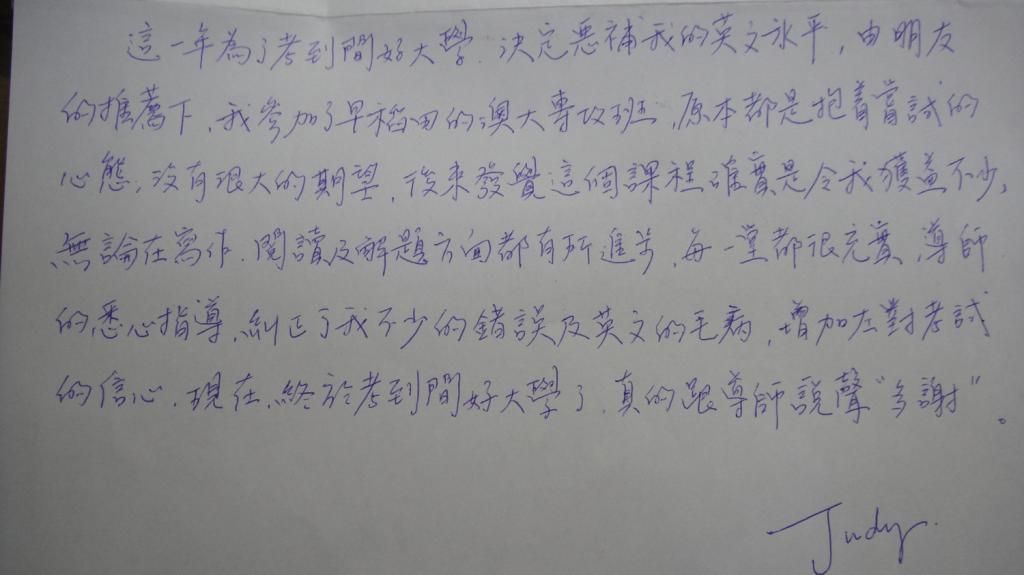 這一年為了考到間好大學，決定惡補我的英文水平，由朋友
的推薦下，我參加了早稻田的澳大專攻班，原本都是抱着嘗試的
心態，沒有很大的期望，後來發覺這個課程確實是令我獲益不少，
無論在寫作，閱讀及解題方面都有所進步，每一堂都很充實，導師
的悉心指導，糾正了我不少的錯誤及英文的毛病，增加左對考試
的信心，現在，終於考到間好大學了，真的跟導師說聲“多謝”。
Judy.